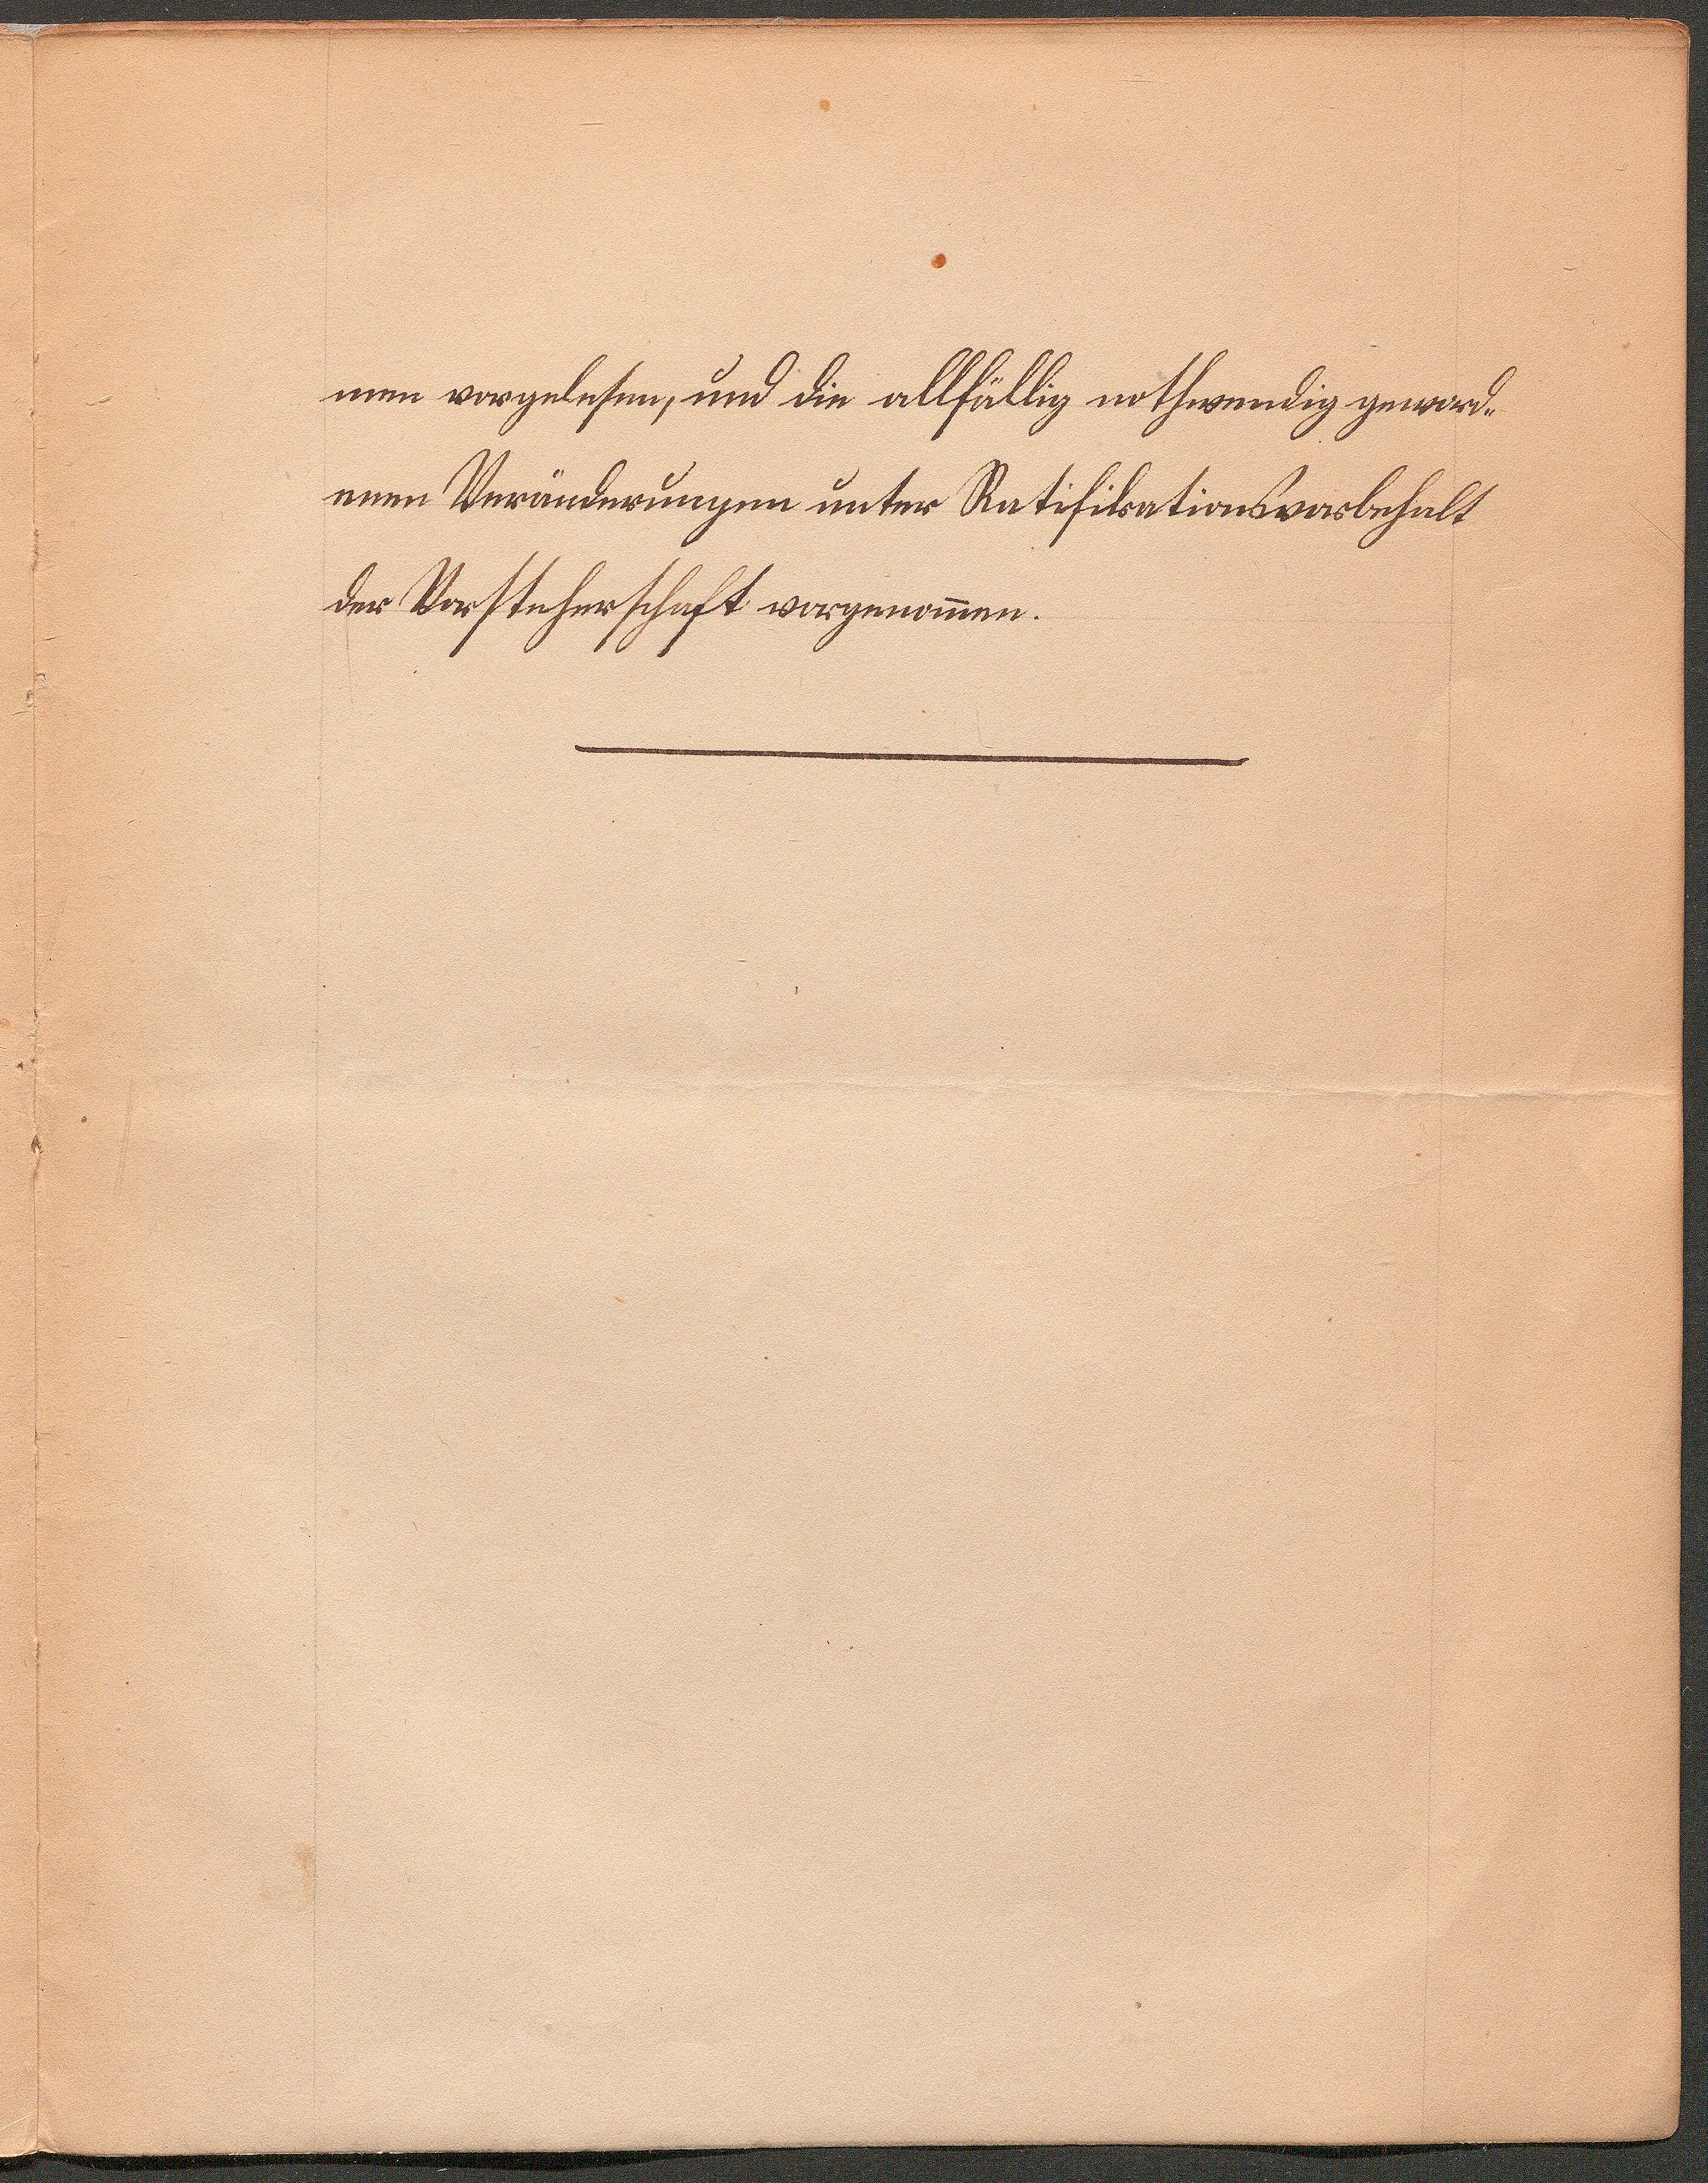 nen vorgelesen, und die allfällig nothwendig geword-
enen Veränderungen unter Ratifikationsvorbehalt
der Vorsteherschaft vorgenom̄en.